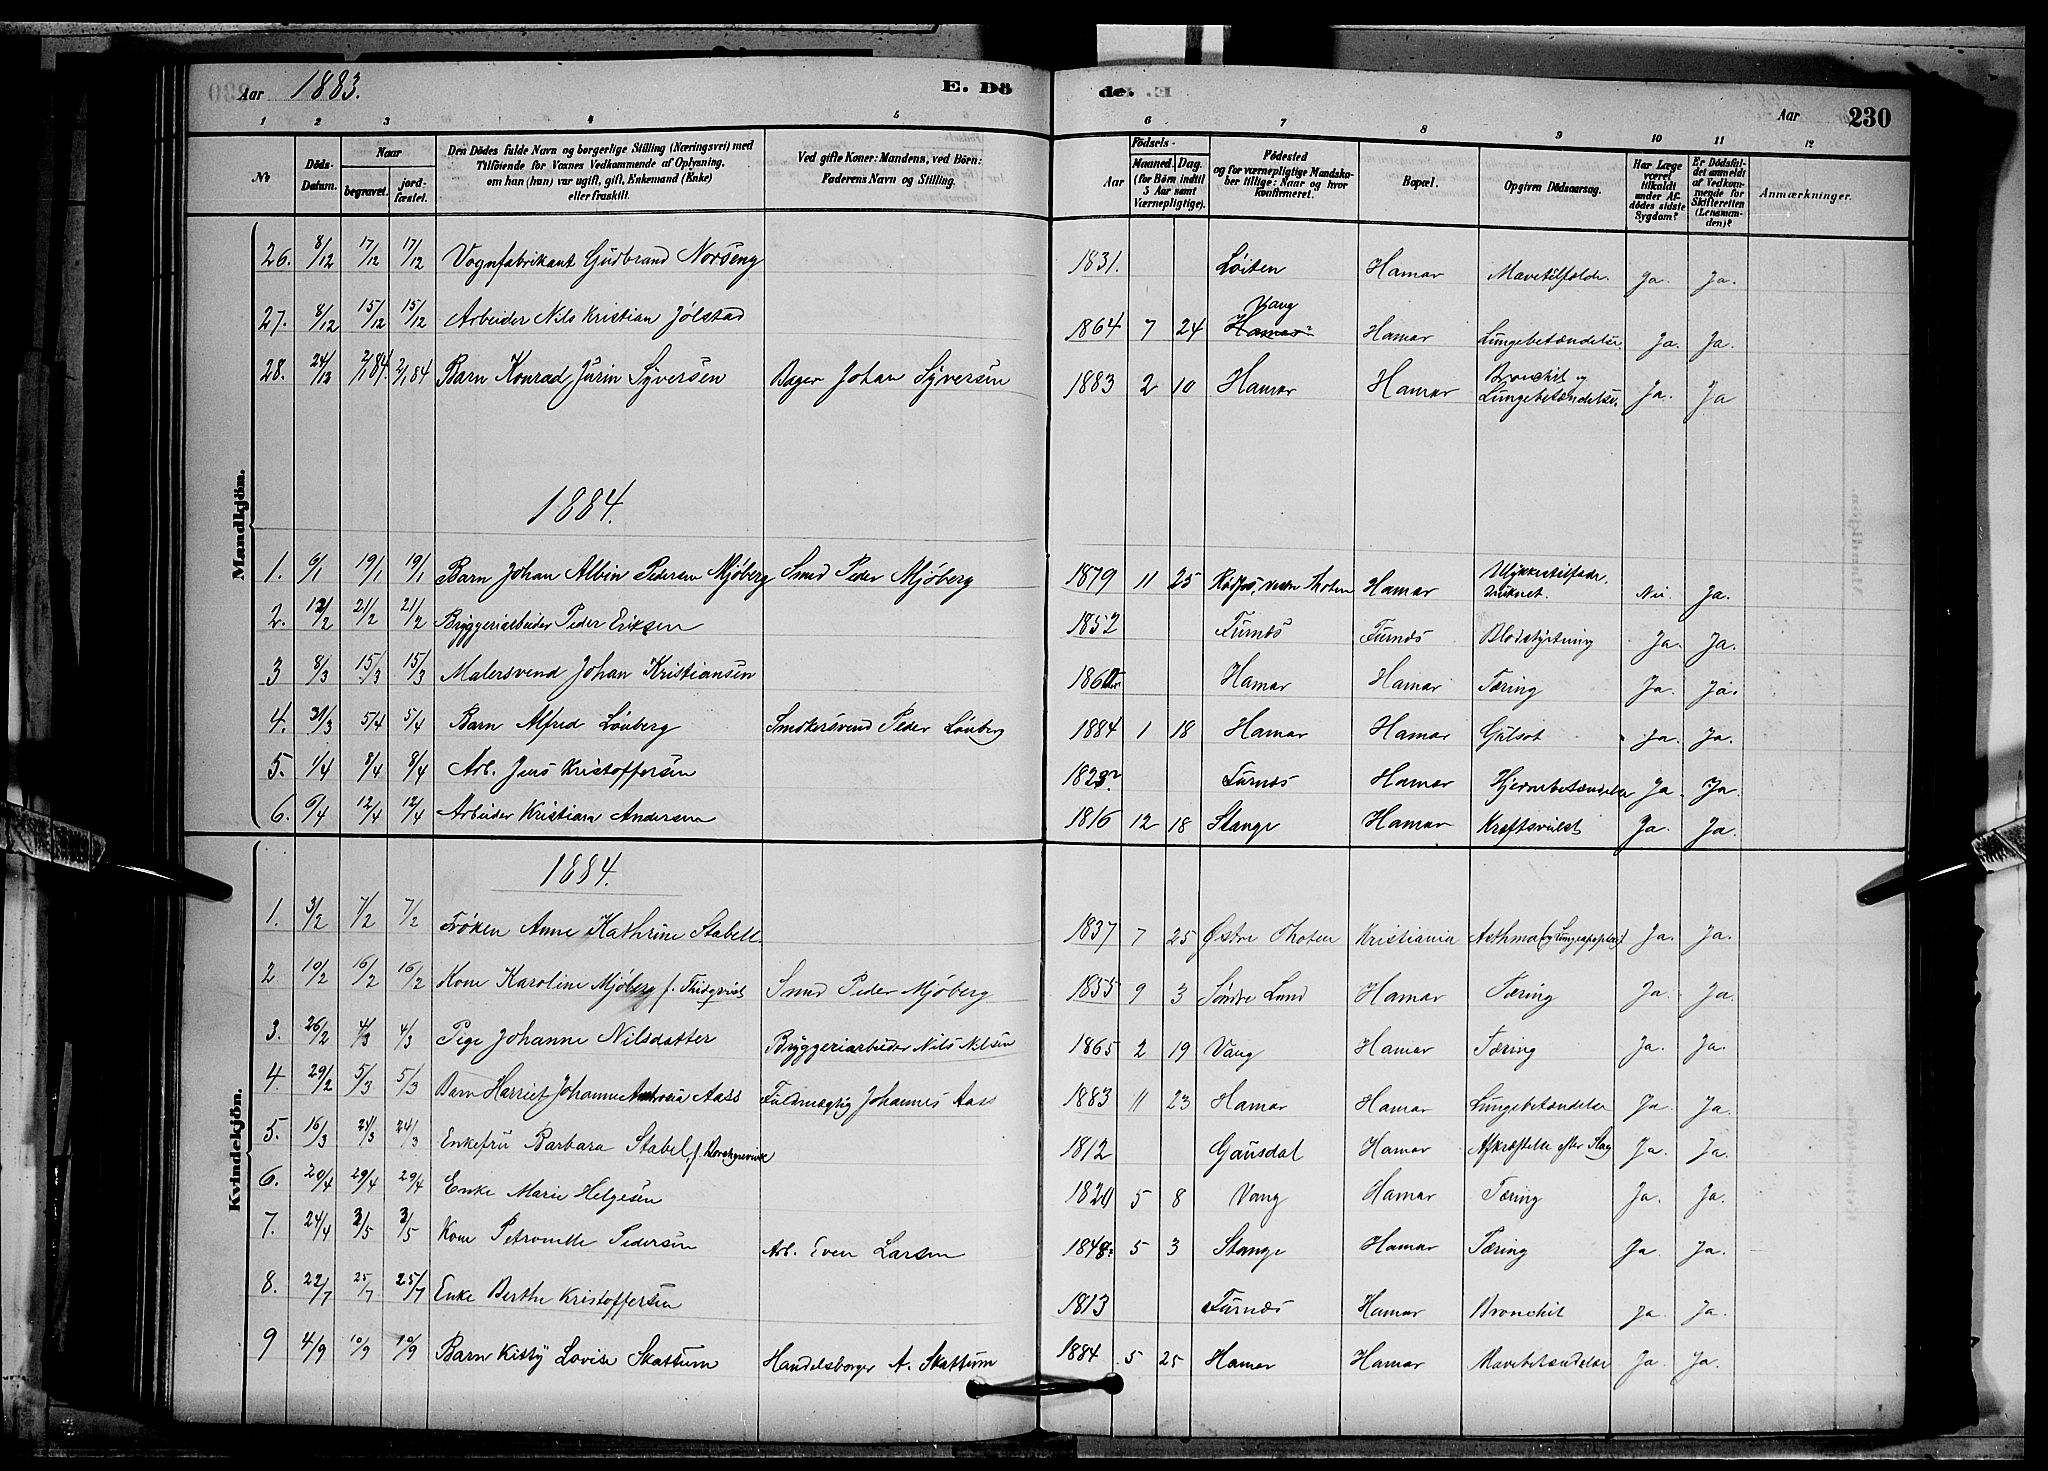 Aar 1883. E. Dö de. Aar 230
1 2 3 4 5 6 7 8 9 10 11 12
No Döds-Datum. Naar begravet. jord-fæstet. Den Dödes fulde Navn og borgerlige Stilling (Næringsvei) med Tilföiende for Voxnes Vedkommende af Oplysning, om han (hun) var ugift, gift, Enkemand (Enke) eller fraskilt. Ved gifte Koner: Mandens, ved Börn: Faderens Navn og Stilling. Födsels- Aar Maaned. Dag. (for Börn indtil 5 Aar samt Værnepligtige). Födested og for værnepligtige Mandskaber tillige: Naar og hvor konfirmeret. Bopæl. Opgiven Dödsaarsag. Har Læge været tilkaldt under Afdödes sidste Sygdom? Er Dödsfaldet anmeldt af Vedkommende for Skifteretten (Lensmanden)? Anmærkninger.
Mandkjön.
26. 8/12 17/12 17/12 Vognfabrikant Gudbrand Norseng 1831. Löiten Hamar Mavetilfælde. Ja. Ja.
27. 8/12 15/12 15/12 Arbeider Nils Kristian Jölstad 1864 7 24 Vang Hamar Hamar Lungebetændelse. Ja. Ja.
28. 24/12 2/1 84. 2/1 84 Barn Konrad Jurin Syversen Bager Johan Syversen 1883 2 10 Hamar Hamar Bronchit og Lungebetændelse. Ja. Ja
1884.
1. 6/1 19/1 19/1 Barn Johan Albin Pedersen Mjöberg Smed Peder Mjöberg 1879 11 25 vestre Thoten Hamar Ulykkestilfælde, druknet. Nei Ja.
2. 12/2 21/2 21/2 Bryggeriarbeider Peder Eriksen 1852 Furnæs Furnæs Blodstyrtning Ja. Ja.
3 8/3 15/3 15/3 Malersvend Johan Kristiansen Hamar Hamar Tæring Ja. Ja.
4. 31/3 5/4 5/4 Barn Alfred Lönberg Snedkersvend Peder Lönberg 1884 1 18 Hamar Hamar Gulsot Ja. Ja.
5. 1/4 8/4 8/4 Arb. Jens Kristoffersen 1823? Furnæs Hamar Hjernebetændelse Ja. Ja.
6. 6/4 12/4 12/4 Arbeider Kristian Andersen 1816 12 18 Stange Hamar Kræftsvulst Ja. Ja.
Kvindekjön.
1884.
1. 3/2 7/2 7/2 Fröken Anne Kathrine Stabell. 1837 7 25 Östre Thoten Kristiania Asthma (og Lungeapoplexi) Ja. Ja.
2 10/2 16/2 16/2 Kone Karoline Mjöberg f. Smed Peder Mjöberg 1855 9 3 Söndre Land Hamar Tæring Ja. Ja.
3. 26/2 4/3 4/3 Pige Johanne Nilsdatter Bryggeriarbeider Nils Nilsen 1865 2 19 Vang Hamar Tæring Ja. Ja.
4. 29/2 5/3 5/3 Barn Harriet Johanne Aass Fuldmægtig Johannes Aass 1883 11 23 Hamar Hamar Lungebetændelse Ja. Ja.
5. 16/3 24/3 24/3 Enkefru Barbara Stabel, f. 1812 Gausdal Hamar Afkræftelse efter Slag Ja. Ja.
6. 20/4 29/4 29/4 Enke Marie Helgesen 5 8 Vang Hamar Tæring Ja. Ja.
7. 24/4 3/5 3/5 Kone Petronelle Pedersen Arb. Even Larsen 1848? 5 3 Stange Hamar Tæring Ja. Ja.
8. 22/7 25/7 25/7 Enke Berthe Kristoffersen 1813 Furnæs Hamar Bronchit Ja. Ja.
9 4/9 10/9 10/9 Barn Kitty Lovise Skattum Handelsborger A. Skattum 1884 5 25 Hamar Hamar Mavebetændelse Ja. Ja.